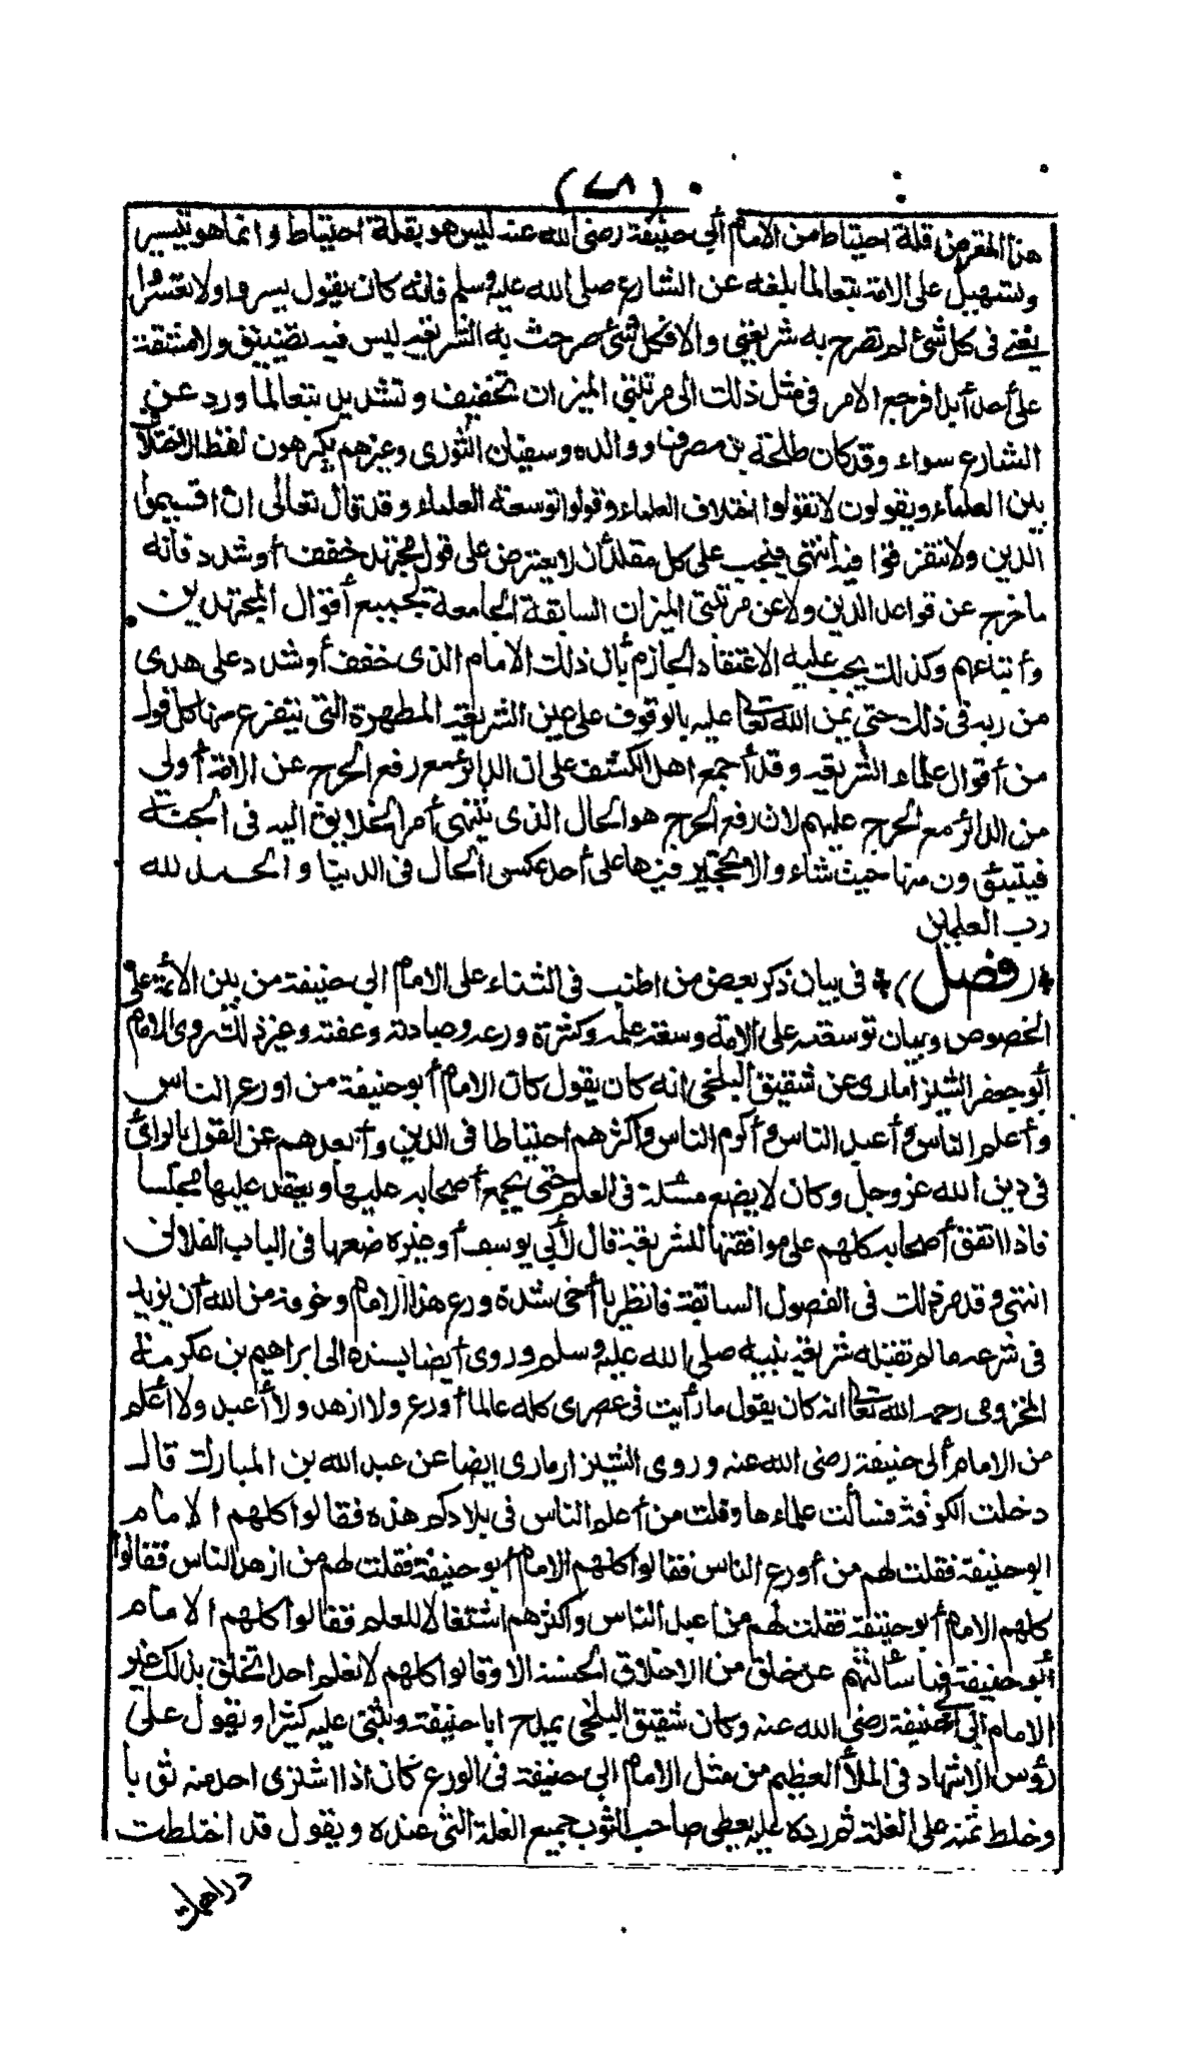 (٧٨)
هذا المعترض قلة احتياط من الامام أبي حنيفة رضي الله عنه ليس هو بقلة احتياط وانما هو تيسير
وتسهيل على الامة تبعا لما بلغه عن الشارع صلى الله عليه وسلم فانه كان يقول يسروا ولا تعسروا
يعني في كل شئ لم تصرح به شريعتي والا فكل شئ صرحت به الشريعة ليس فيه تضييق ولا مشقة
على أحد أبدا فرجع الامر في مثل ذلك الى مرتبتي الميزان تخفيف وتشديد تبعا لما ورد عن
الشارع سواء وقد كان طلحة بن مصرف ووالده وسفيان الثوري وغيرهم يكرهون لفظ الاختلاف
بين العلماء ويقولون لا تقولوا اختلاف العلماء وقولوا توسعة العلماء وقد قال تعالى ان اقيموا
الدين ولا تتفرقوا فيه انتهى فيجب على كل مقلد أن لا يعترض على قول مجتهد خفف أو شدد فانه
ما خرج عن قواعد الدين ولا عن مرتبتي الميزان السابقة الجامعة لجميع أقوال المجتهدين
وأتباعهم وكذلك يجب عليه الاعتقاد الجازم بأن ذلك الامام الذي خفف أو شدد على هدى
من ربه في ذلك حتى يمن الله تعالى عليه بالوقوف على عين الشريعة المطهرة التي يتفرع منها كل قول
من أقوال علماء الشريعة وقد أجمع اهل الكشف على ان الدائر مع رفع الحرج عن الامة أولى
من الدائر مع الحرج عليهم لان رفع الحرج هو الحال الذي ينتهي أمر الخلايق اليه في الجنة
فيتبوؤن منها حيث شاء والا تحجير فيها على أحد عكس الحال في الدنيا والحمد لله
رب العلمين
*(فصل)* في بيان ذكر بعض من اطنب في الثناء على الامام ابي حنيفة من بين الأئمة على
الخصوص وبيان توسعته على الامة وسعة علمه وكثرة ورعه وعبادته وعفته وغير ذلك روى الامام
أبو جعفر الشيزاماري عن شقيق البلخي انه كان يقول كان الامام أبو حنيفة من اورع الناس
وأعلم الناس وأعبد الناس وأكرم الناس وأكثرهم احتياطا في الدين وأبعدهم عن القول بالرأي
في دين الله عز وجل وكان لا يضع مسئلة في العلم حتى يجمع أصحابه عليها ويعقد عليها مجلسا
فاذا اتفق أصحابه كلهم على موافقتها للشريعة قال لأبي يوسف أو غيره ضعها في الباب الفلاني
انتهى وقد مر ذلك في الفصول السابقة فانظر يا أخي شدة ورع هذا الامام وخوفه من الله أن يزيد
في شرعه ما لم تقبله شريعة نبيه صلى الله عليه وسلم وروى أيضا بسنده الى ابراهيم بن عكرمة
المخزومي رحمه الله تعالى انه كان يقول ما رأيت في عصري كله عالما أورع ولا ازهد ولا أعبد ولا أعلم
من الامام أبي حنيفة رضي الله عنه وروى الشيزارماري ايضا عن عبد الله بن المبارك قال
دخلت الكوفة فسألت علماءها وقلت من أعلم الناس في بلادكم هذه فقالوا كلهم الامام
ابو حنيفة فقلت لهم من أورع الناس فقالوا كلهم الامام أبو حنيفة فقلت لهم من ازهد الناس فقالوا
كلهم الامام أبو حنيفة فقلت لهم من اعبد الناس وأكثرهم اشتغالا للعلم فقالوا كلهم الامام
أبو حنيفة فما سألتهم عن خلق من الاخلاق الحسنة الا وقالوا كلهم لا نعلم احدا تخلق بذلك غير
الامام ابي حنيفة رضي الله عنه وكان شقيق البلخي يمدح ابا حنيفة ويثني عليه كثيرا ويقول على
رؤس الاشهاد في الملأ العظيم من مثل الامام ابي حنيفة في الورع كان اذا اشترى احد منه ثوبا
وخلط ثمنه على الغلة ثم رده عليه يعطي صاحب الثوب جميع الغلة التي عنده ويقول قد اختلطت
دراهمك